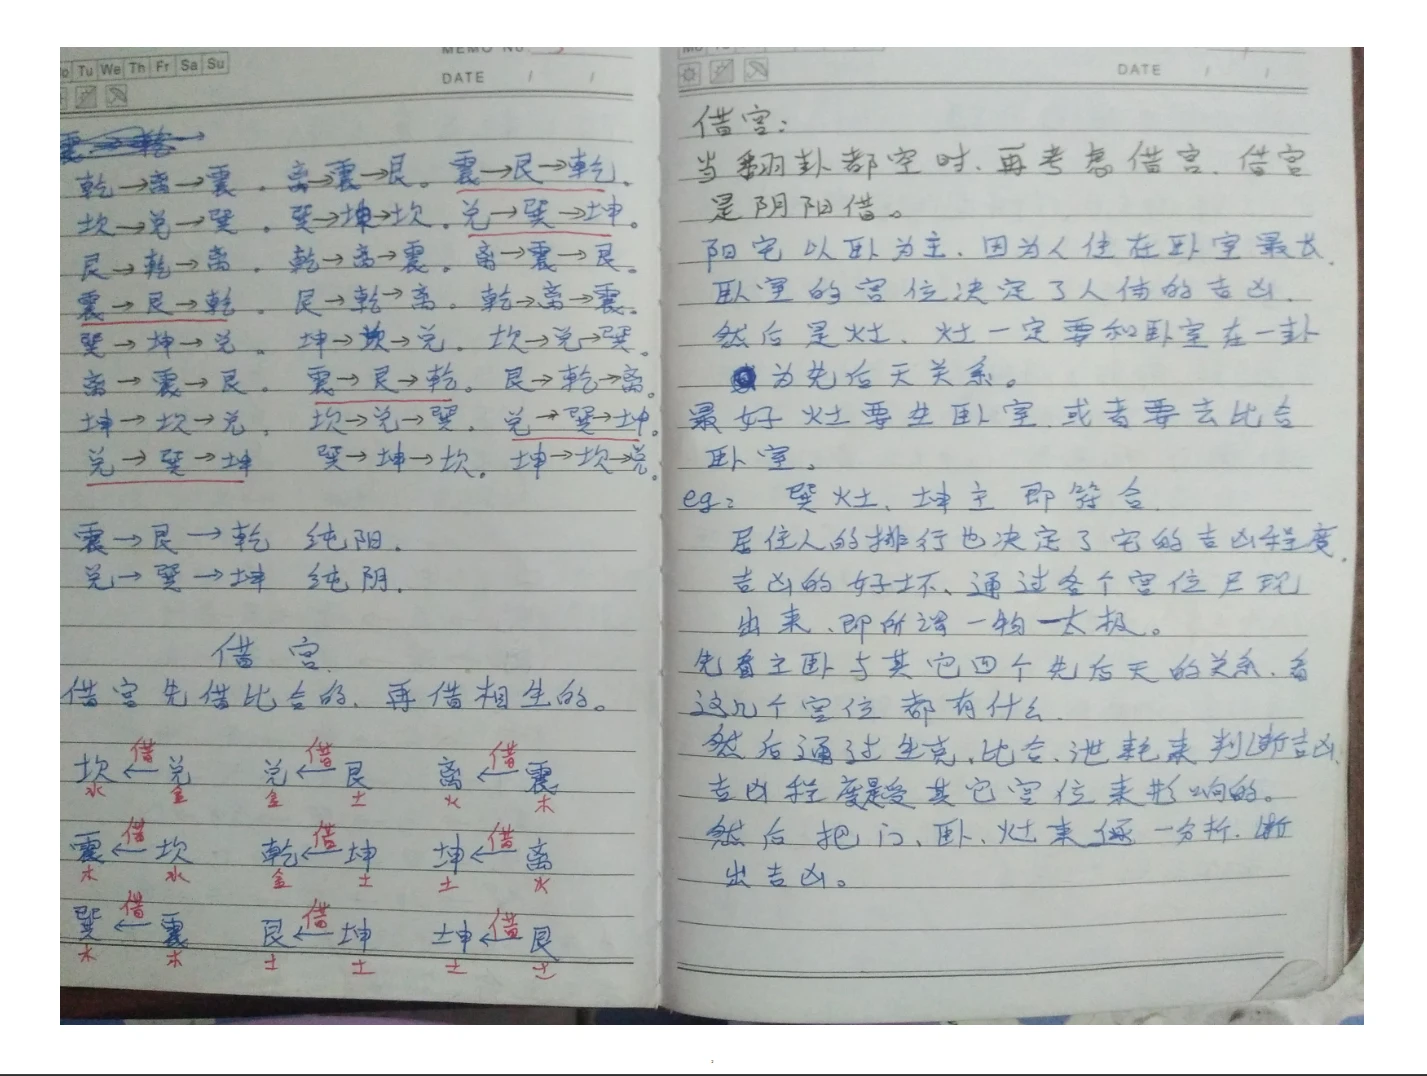 MEMO No
Tu We Th Fr Sa Su
DATE / /
乾→离→震。离→震→艮。震→艮→乾。
坎→兑→巽。巽→坤→坎。兑→巽→坤。
艮→乾→离。乾→离→震。离→震→艮。
震→艮→乾。艮→乾→离。乾→离→震。
巽→坤→兑。坤→坎→兑。坎→兑→巽。
离→震→艮。震→艮→乾。艮→乾→离。
坤→坎→兑。坎→兑→巽。兑→巽→坤。
兑→巽→坤 巽→坤→坎。坤→坎→兑。
震→艮→乾 纯阳.
兑→巽→坤 纯阴.
借宫.
借宫先借比合的.再借相生的。
坎←借兑 兑←借艮 离←借震
水 金 金 土 火 木
震←借坎 乾←借坤 坤←借离
木 水 金 土 土 火
巽←借震 艮←借坤 坤←借艮
木 木 土 土 土 土
DATE / /
借宫:
当翻卦都空时.再考虑借宫.借宫
是阴阳借。
阳宅以卧为主.因为人住在卧室最长.
卧室的宫位决定了人体的吉凶.
然后是灶.灶一定要和卧室在一卦
为先后天关系。
最好灶要生卧室.或者要去比合
卧室。
eg: 巽灶、坤主即符合.
居住人的排行也决定了宅的吉凶程度.
吉凶的好坏、通过各个宫位呈现
出来.即所谓一物一太极。
先看主卧与其它四个先后天的关系.看
这几个宫位都有什么.
然后通过生克.比合.泄耗来判断吉凶.
吉凶程度是受其它宫位来影响的。
然后把门、卧、灶来逐一分析.断
出吉凶。